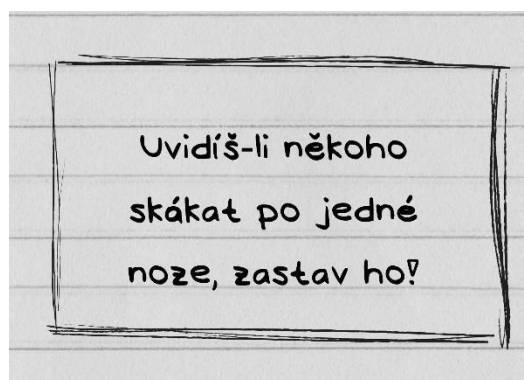 Uvidíš-li někoho
skákat po jedné
noze, zastav ho!